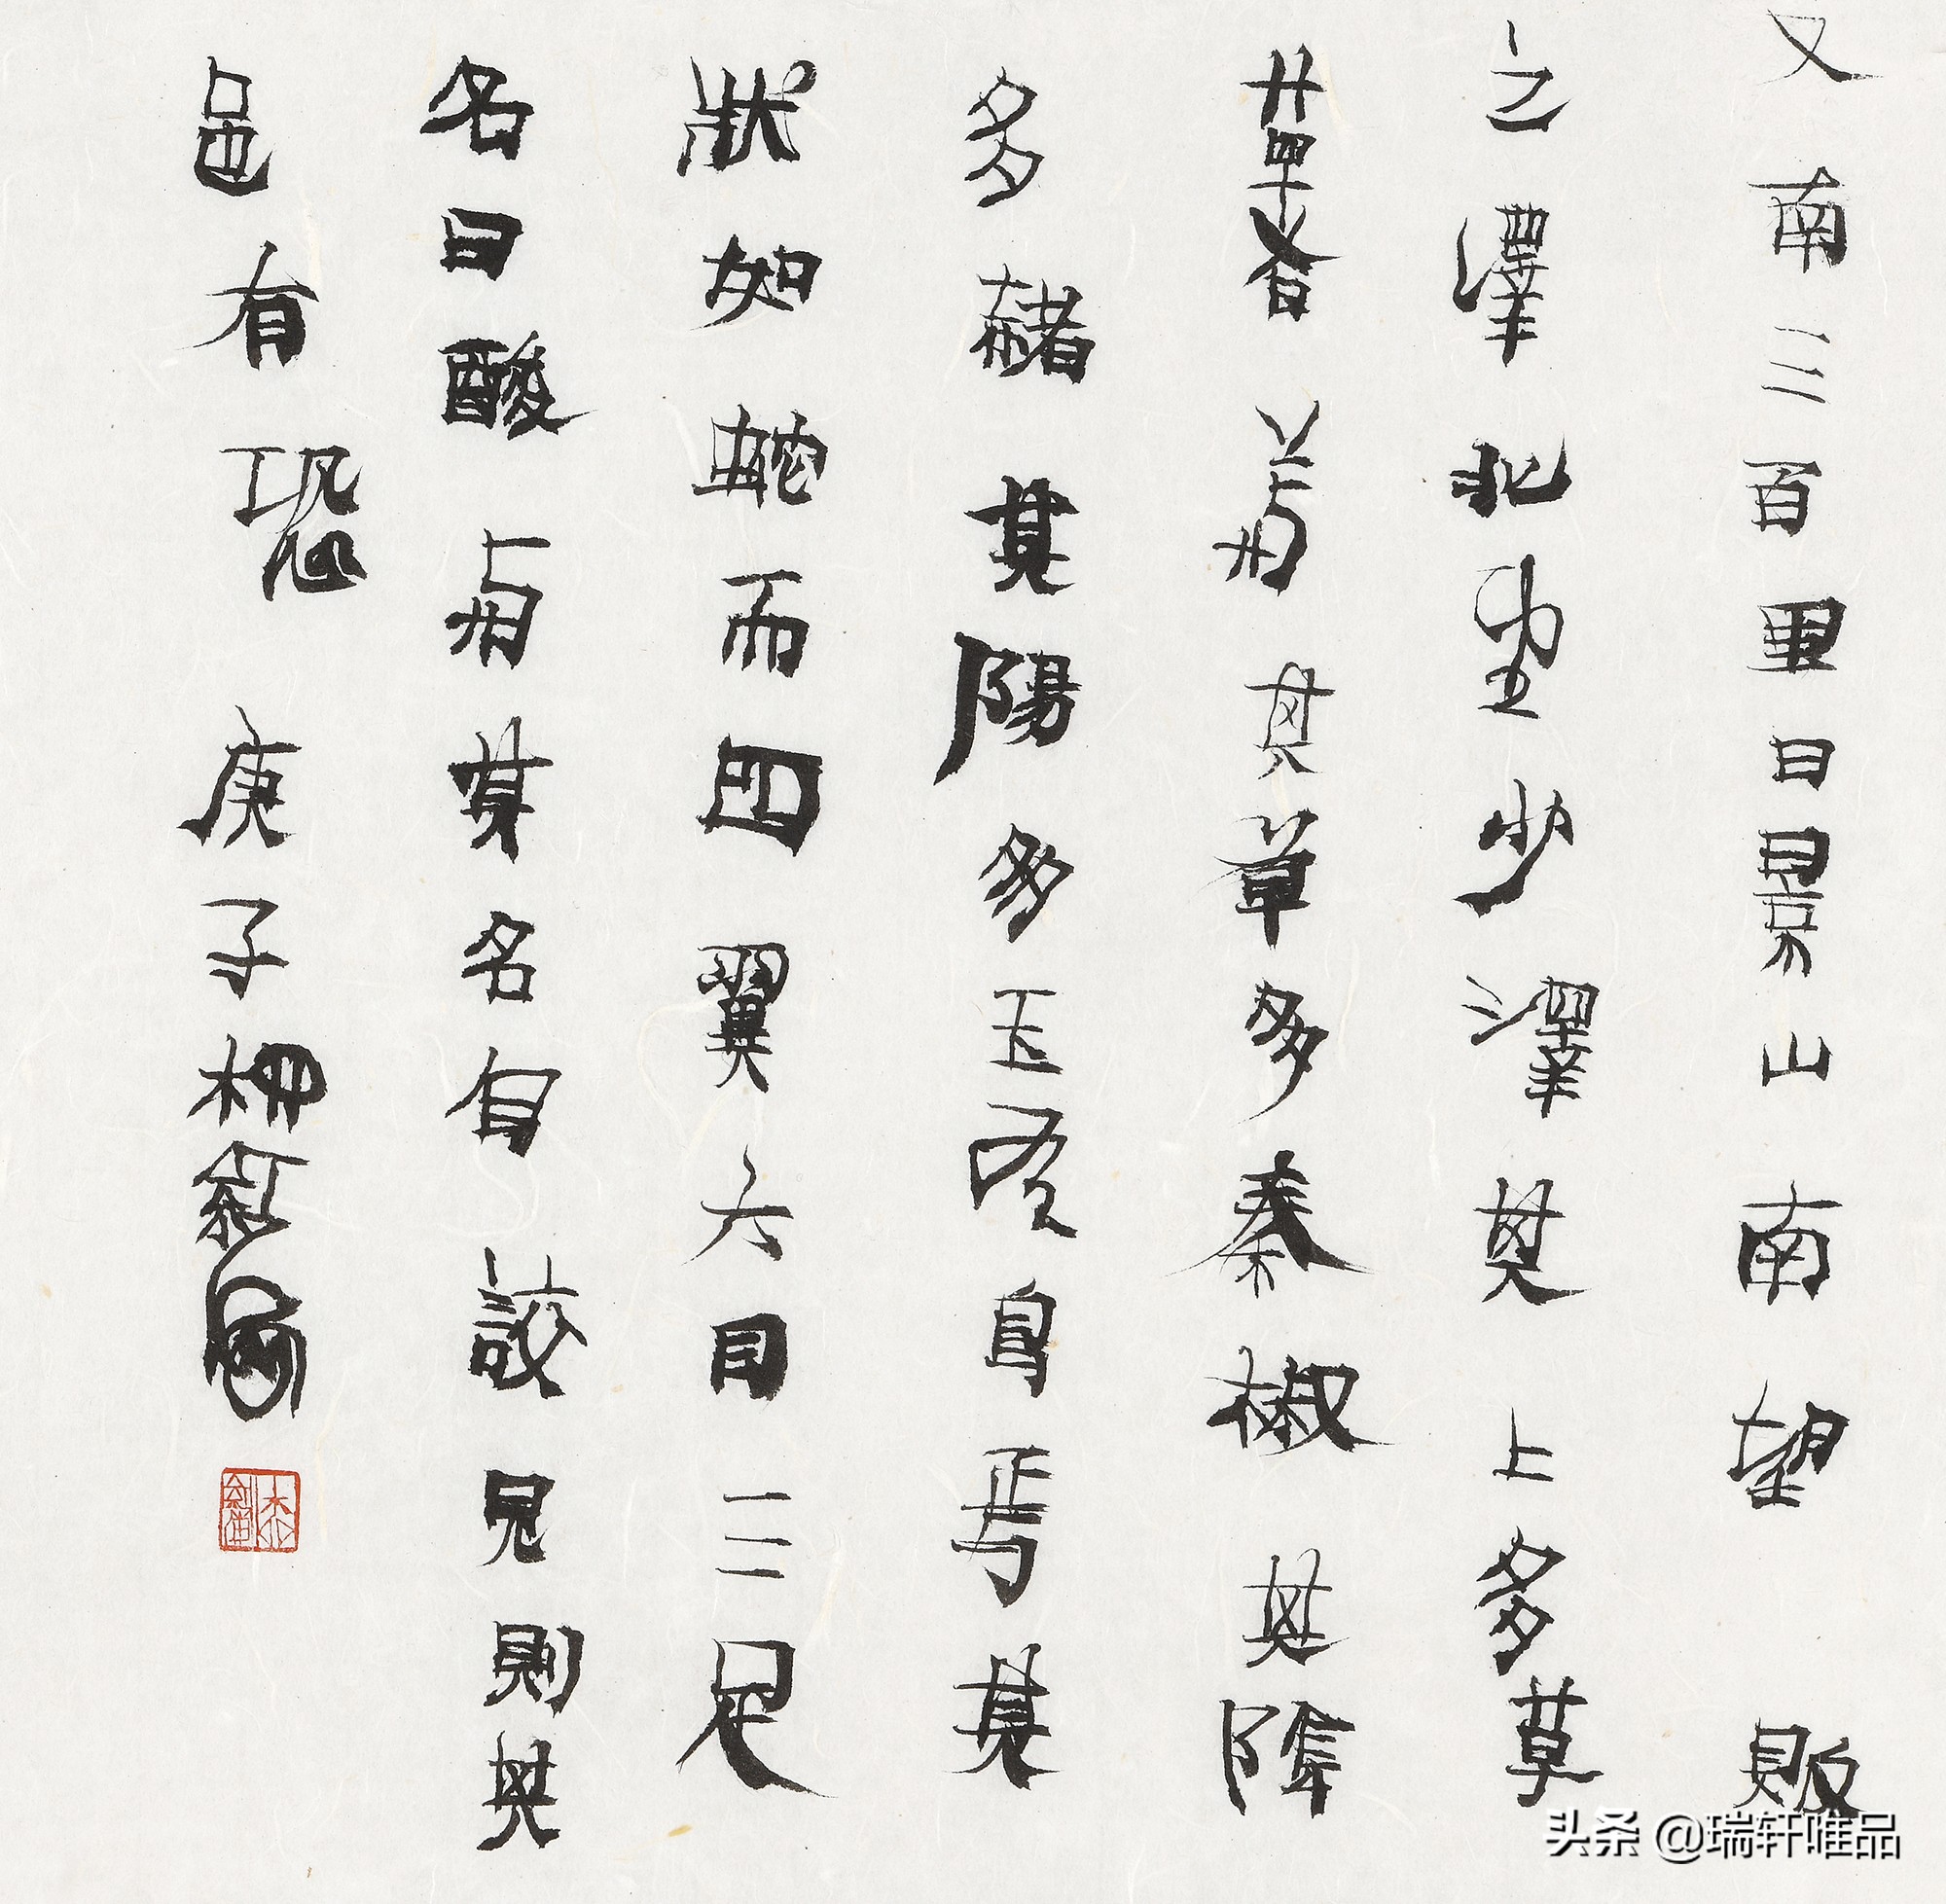 又南三百里曰景山南望販
之澤北望少澤其上多草
薯藇其草多秦椒其陰
多赭其陽多玉有鳥焉其
狀如蛇而四翼六目三足
名曰酸與其名自詨見則其
邑有恐 庚子
头条 @瑞轩唯品